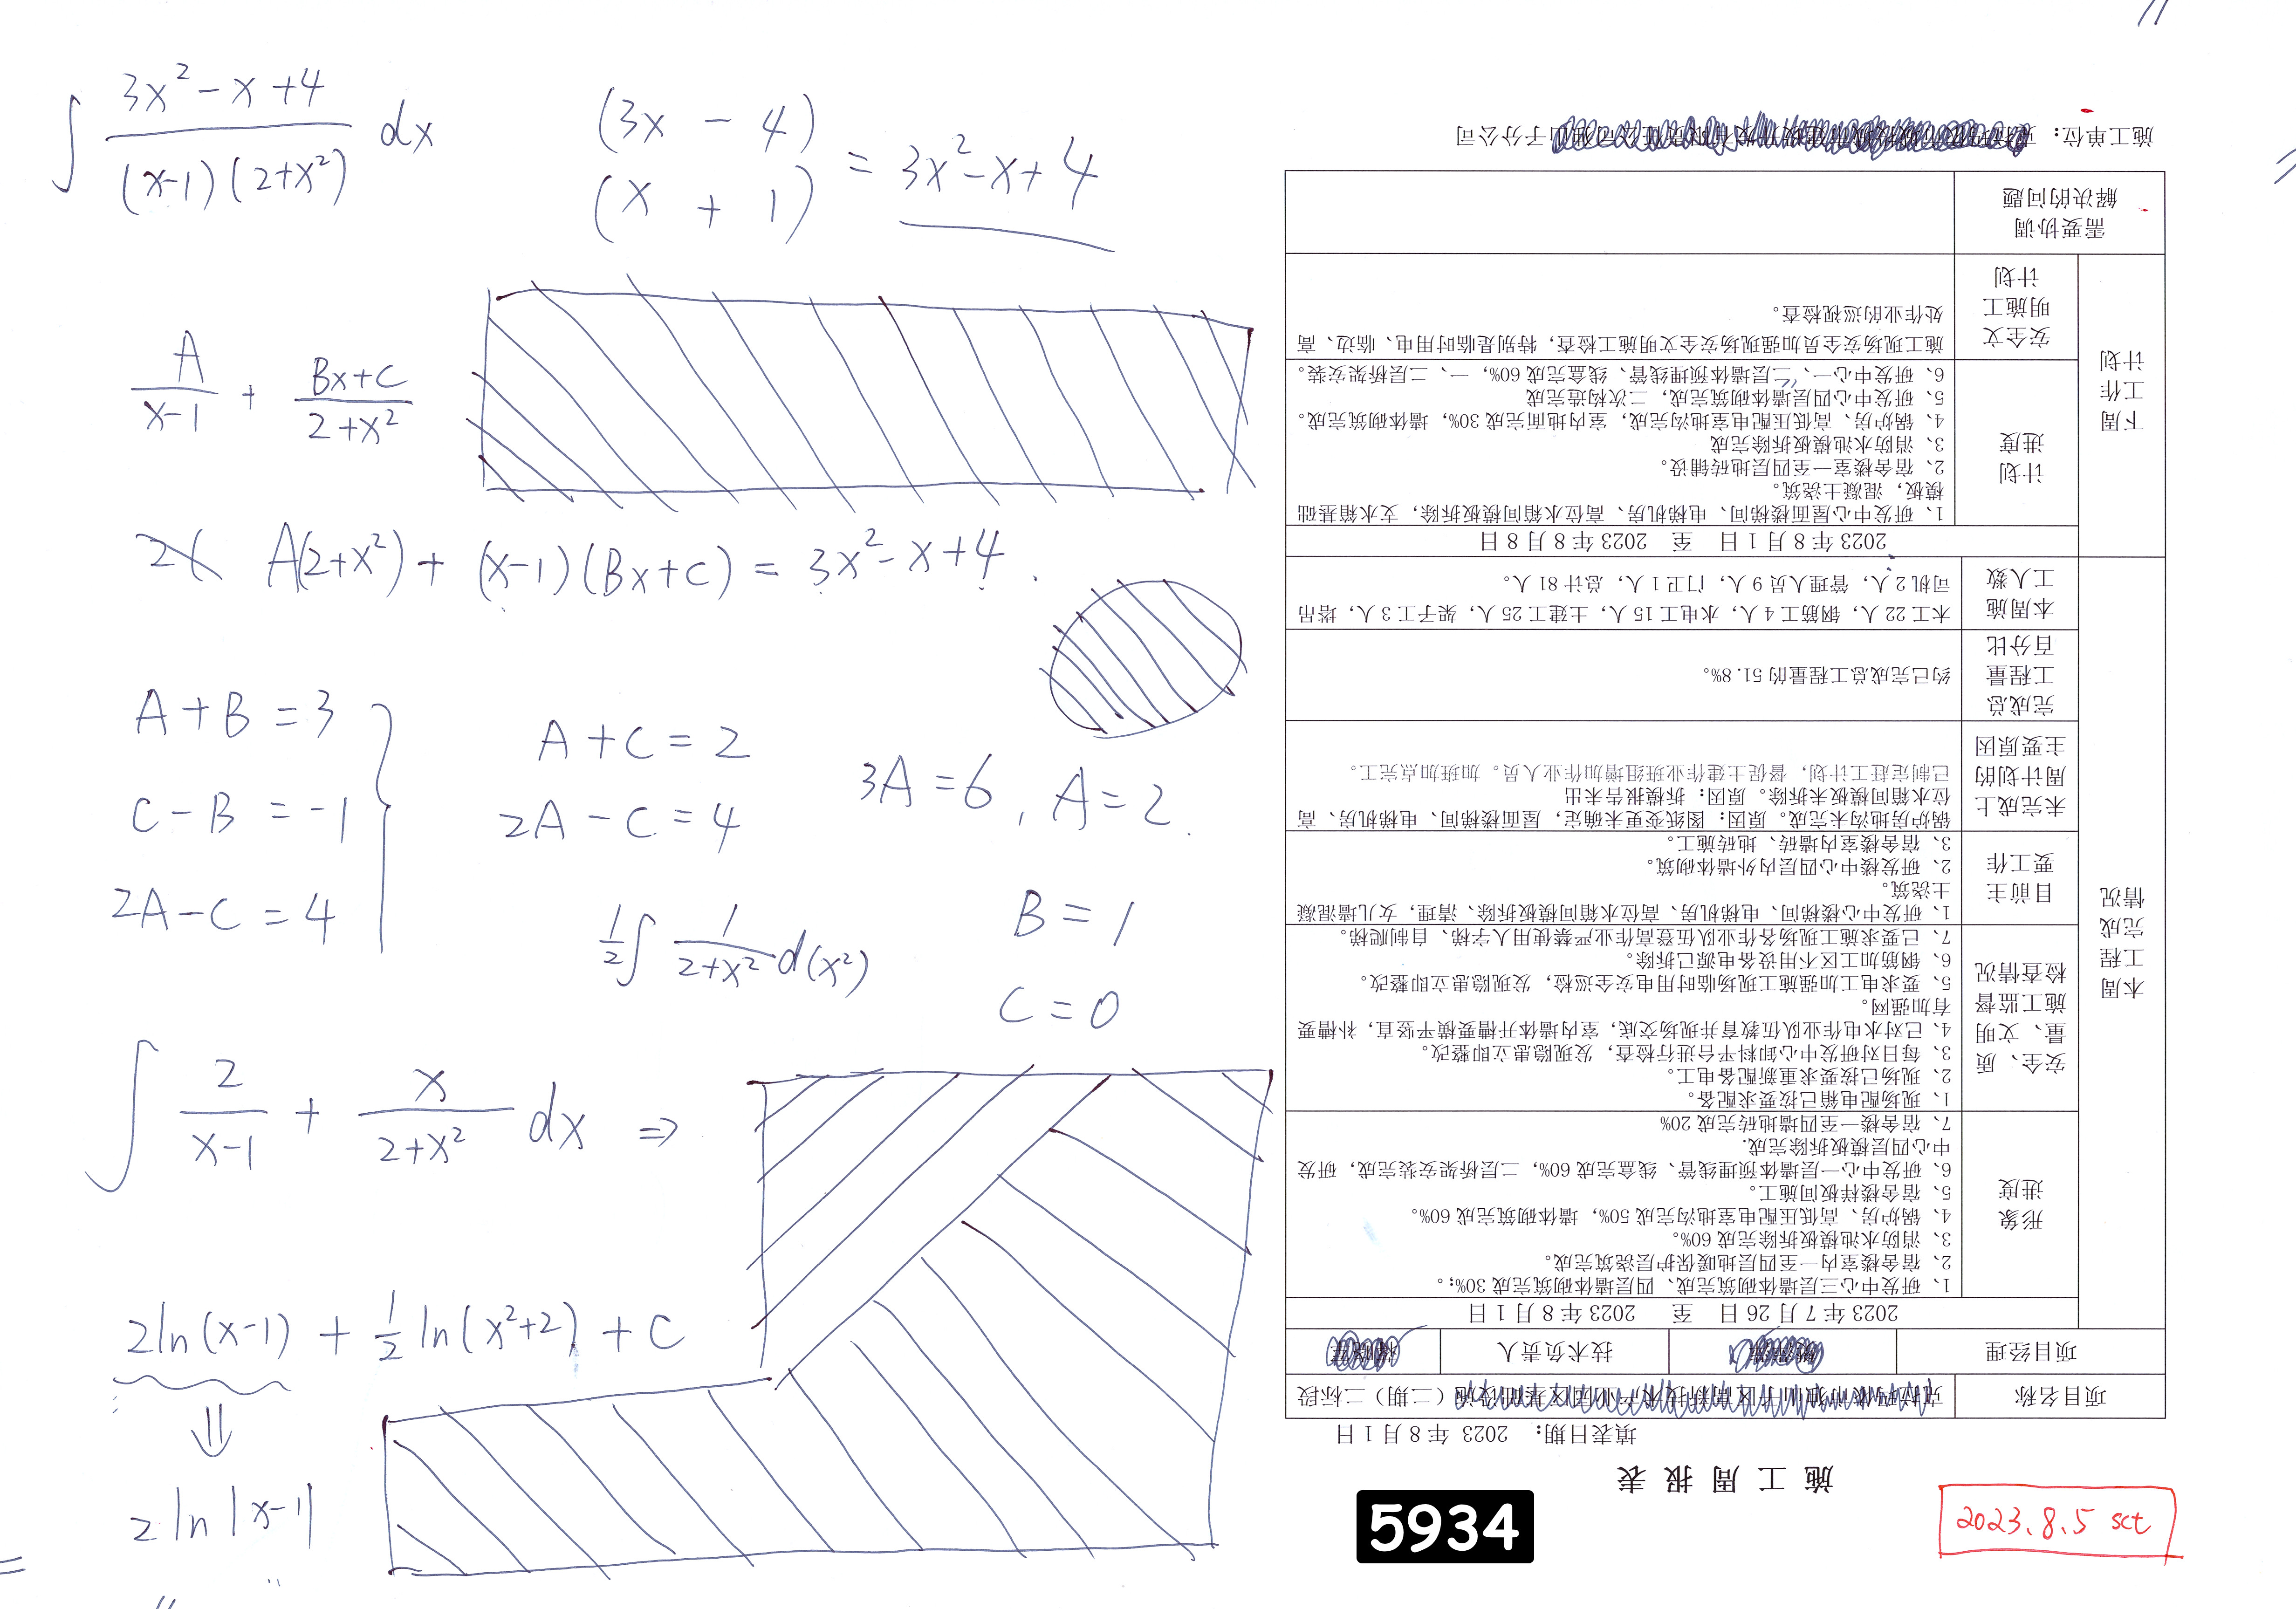 ∫ 3x²-x+4 / (x-1)(2+x²) dx
(3x - 4)
(x + 1)
= 3x²-x+4
A/(x-1) + (Bx+C)/(2+x²)
A(2+x²) + (x-1)(Bx+C) = 3x²-x+4.
A+B=3
C-B=-1
2A-C=4
A+C=2
2A-C=4
3A=6, A=2.
B=1
C=0
1/2 ∫ 1/(2+x²) d(x²)
∫ 2/(x-1) + x/(2+x²) dx ⇒
2ln(x-1) + 1/2 ln(x²+2) + C
⇓
2ln|x-1|
5934
2023.8.5 sct
施工周报表
填表日期： 2023 年 8 月 1 日
项目名称
（二期）二标段
项目经理
技术负责人
本周工程完成情况
2023 年 7 月 26 日 至 2023 年 8 月 1 日
形象进度
1、研发中心三层墙体砌筑完成、四层墙体砌筑完成 30%;。
2、宿舍楼室内一至四层地暖保护层浇筑完成。
3、消防水池模板拆除完成 60%。
4、锅炉房、高低压配电室地沟完成 50%，墙体砌筑完成 60%。
5、宿舍楼样板间施工。
6、研发中心一层墙体预埋线管、线盒完成 60%，二层桥架安装完成，研发
中心四层模板拆除完成.
7、宿舍楼一至四墙地砖完成 20%
安全、质量、文明施工监督检查情况
1、现场配电箱已按要求配备。
2、现场已按要求重新配备电工。
3、每日对研发中心卸料平台进行检查，发现隐患立即整改。
4、已对水电作业队伍教育并现场交底，室内墙体开槽要横平竖直，补槽要
有加强网。
5、要求电工加强施工现场临时用电安全巡检，发现隐患立即整改。
6、钢筋加工区不用设备电源已拆除。
7、已要求施工现场各作业队伍登高作业严禁使用人字梯、自制爬梯。
目前主要工作
1、研发中心楼梯间、电梯机房、高位水箱间模板拆除、清理，女儿墙混凝
土浇筑。
2、研发楼中心四层内外墙体砌筑。
3、宿舍楼室内墙砖、地砖施工。
未完成上周计划的主要原因
锅炉房地沟未完成。原因：图纸变更未确定，屋面楼梯间、电梯机房、高
位水箱间模板未拆除。原因：拆模报告未出
已制定赶工计划，督促土建作业班组增加作业人员。加班加点完工。
完成总工程量百分比
约已完成总工程量的 51.8%。
本周施工人数
木工 22 人，钢筋工 4 人，水电工 15 人，土建工 25 人，架子工 3 人，塔吊
司机 2 人，管理人员 9 人，门卫 1 人，总计 81 人。
下周工作计划
2023 年 8 月 1 日 至 2023 年 8 月 8 日
计划进度
1、研发中心屋面楼梯间、电梯机房、高位水箱间模板拆除，支水箱基础
模板，混凝土浇筑。
2、宿舍楼室一至四层地砖铺设。
3、消防水池模板拆除完成
4、锅炉房、高低压配电室地沟完成，室内地面完成 30%，墙体砌筑完成。
5、研发中心四层墙体砌筑完成，二次构造完成
6、研发中心一、二层墙体预埋线管、线盒完成 60%，一、二层桥架安装。
安全文明施工计划
施工现场安全员加强现场安全文明施工检查，特别是临时用电、临边、高
处作业的巡视检查。
需要协调解决的问题
施工单位：
子分公司